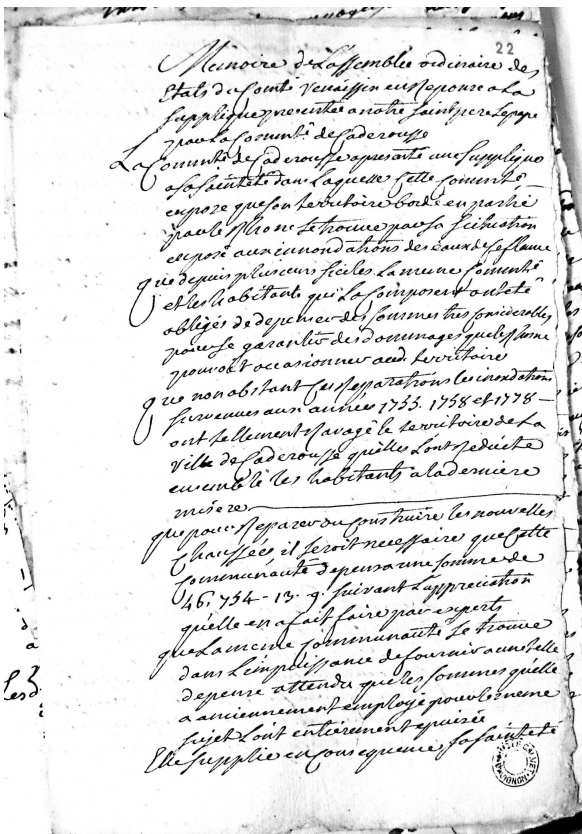 22
Memoire de L'assemblée ordinaire des
Etats du Comté Venaissin en Reponse a La
Supplique presentée a notre Saint pere Le pape
par La Comunté de Caderousse
La Comunté de Caderousse a presenté une Supplique
a Sa Sainteté dans Laquelle Cette Comunté
expose que Son territoire bordé en partie
par le Rhone Se trouve par Sa Situation
exposé aux innondations des eaux de Ce fleuve
que depuis plusieurs Siecles La meme Comunté
et les habitants qui La Composent ont eté
obligés de depenser des Sommes très Considerables
pour Se garantir des dommages que le Rhone
pouvoit occasionner aud. territoire
que nonobstant Ces Reparations les inondations
Survenues aux années 1755. 1758 et 1778 -
ont tellement Ravagé le territoire de La
ville de Caderousse qu'elles L'ont Reduite
ensemble les habitants a la derniere
misere
que pour Reparer ou Construire les nouvelles
Chaussées il Seroit necessaire que Cette
Communauté depensa une Somme de
46,754 - 13 - 9. Suivant L'appreciation
qu'elle en a fait faire par experts
que La meme Communauté Se trouve
dans L'impuissance de fournir a une telle
depense attendu que les Sommes qu'elle
a anciennement employé pour le meme
Sujet L'ont entièrement epuisée
Elle Supplie en Consequence Sa Sainteté